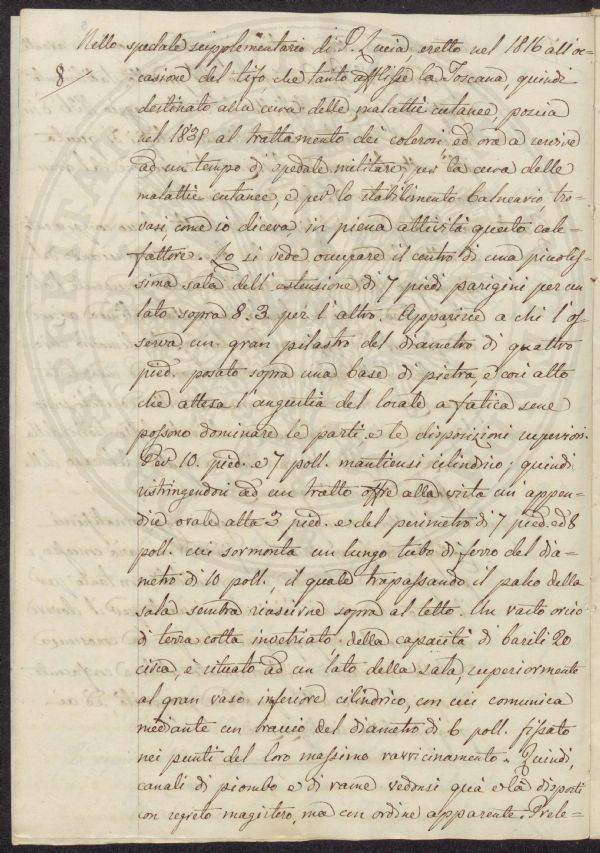 Nello spedale supplementario di S. Lucia, eretto nel 1816 all'oc-
8/ casione del tifo, che tanto afflisse la Toscana, quindi
destinato alla cura delle malattie cutanee, poscia
nel 1835 al trattamento dei colerosi, ed ora a servire
ad un tempo di spedale militare, per la cura delle
malattie cutanee, e per lo stabilimento balneario, tro-
vasi, come io diceva, in piena attività questo cale-
fattore. Lo si vede occupare il centro di una piccolis-
sima sala dell'estensione di 7 piedi parigini per un
lato sopra 8. 3. per l'altro. Apparisce a chi l'os-
serva un gran pilastro del diametro di quattro
pied. posato sopra una base di pietra, e così alto
che attesa l'angustia del locale a fatica sene
possono dominare le parti, e le disposizioni superiori.
Per 10. pied. e 7 poll. mantiensi cilindrico; quindi
ristringendosi ad un tratto offre alla vista un'appen-
dice ovale alta 3 pied. e del perimetro di 7 pied. ed 8
poll. cui sormonta un lungo tubo di ferro del dia-
metro di 10 poll., il quale trapassando il palco della
sala sembra riuscirne sopra al tetto. Un vasto orcio
di terra cotta invetriato, della capacità di barili 20
circa, è situato ad un lato della sala, superiormente
al gran vaso inferiore cilindrico, con cui comunica
mediante un braccio del diametro di 6 poll. fissato
nei punti del loro massimo ravvicinamento. Quindi,
canali di piombo e di rame vedonsi quà e là disposti
con segreto magistero, ma con ordine apparente. Prele-